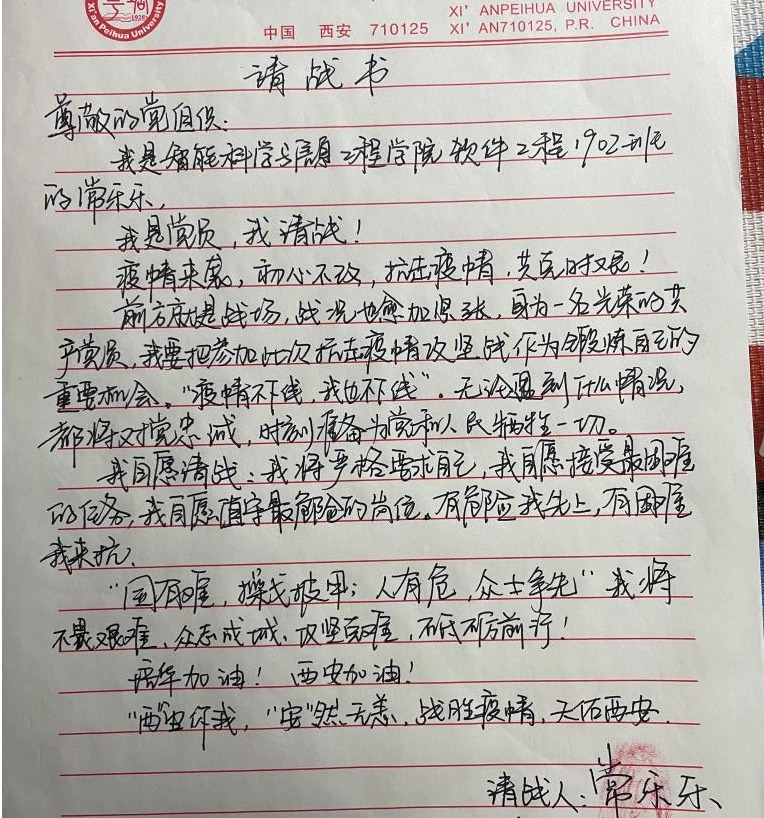 Xi'an Peihua University
1928
XI' ANPEIHUA UNIVERSITY
中国 西安 710125 XI' AN710125, P.R. CHINA
请战书
尊敬的党组织:
我是智能科学与信息工程学院软件工程1902班
的常乐乐,
我是党员,我请战!
疫情来袭,初心不改,抗击疫情,共克时艰!
前方就是战场,战况也愈加紧张,身为一名光荣的共
产党员,我要把参加此次抗击疫情攻坚战作为锻炼自己的
重要机会。"疫情不线,我也不线"。无论遇到什么情况,
都将对党忠诚,时刻准备为党和人民牺牲一切。
我自愿请战:我将严格要求自己,我自愿接受最困难
的任务,我自愿值守最危险的岗位。有危险我先上,有困难
我来抗.
"国有难,操戈披甲;人有危,众士争先"我将
不畏艰难、众志成城、攻坚克难、砥砺前行!
培华加油!西安加油!
"西"迎你我,"安"然无恙、战胜疫情、天佑西安.
请战人:常乐乐、